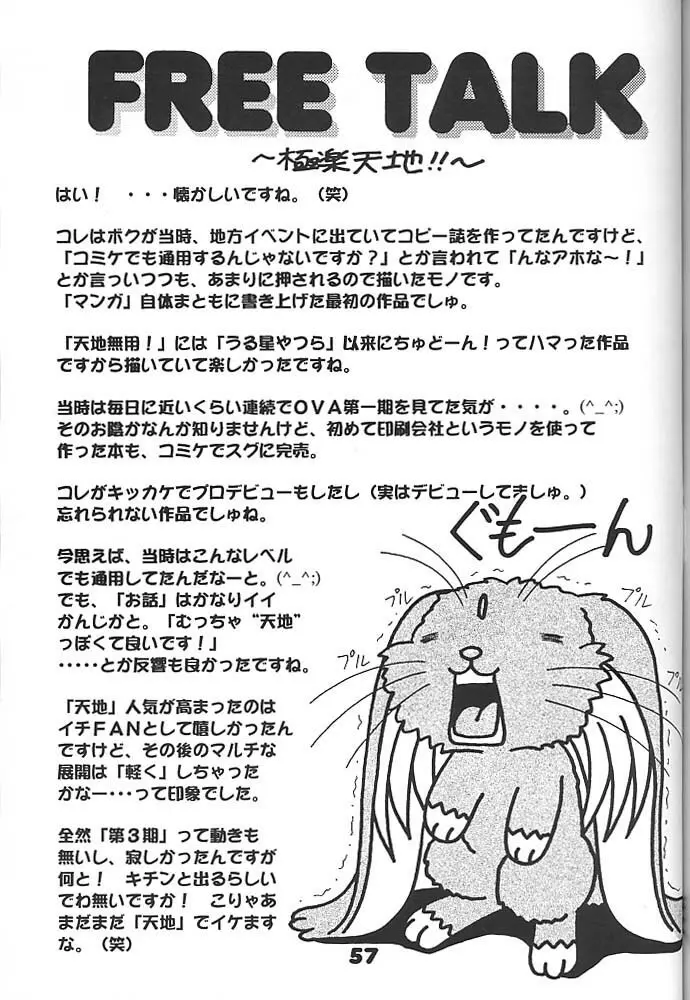 FREE TALK
～極楽天地!!～
はい！　・・・懐かしいですね。（笑）
コレはボクが当時、地方イベントに出ていてコピー誌を作ってたんですけど、
「コミケでも通用するんじゃないですか？」とか言われて「んなアホな～！」
とか言っいつつも、あまりに押されるので描いたモノです。
「マンガ」自体まともに書き上げた最初の作品でしゅ。
「天地無用！」には「うる星やつら」以来にちゅどーん！ってハマった作品
ですから描いていて楽しかったですね。
当時は毎日に近いくらい連続でＯＶＡ第一期を見てた気が・・・・。(^_^;)
そのお陰かなんか知りませんけど、初めて印刷会社というモノを使って
作った本も、コミケでスグに完売。
コレがキッカケでプロデビューもしたし（実はデビューしてましゅ。）
忘れられない作品でしゅね。
ぐもーん
今思えば、当時はこんなレベル
でも通用してたんだなーと。(^_^;)
でも、「お話」はかなりイイ
かんじかと。「むっちゃ“天地”
っぽくて良いです！」
・・・・・とか反響も良かったですね。
「天地」人気が高まったのは
イチＦＡＮとして嬉しかったん
ですけど、その後のマルチな
展開は「軽く」しちゃった
かなー・・・って印象でした。
全然「第３期」って動きも
無いし、寂しかったんですが
何と！　キチンと出るらしい
でわ無いですか！　こりゃあ
まだまだ「天地」でイケます
な。（笑）
プル
プル
プル
プル
57